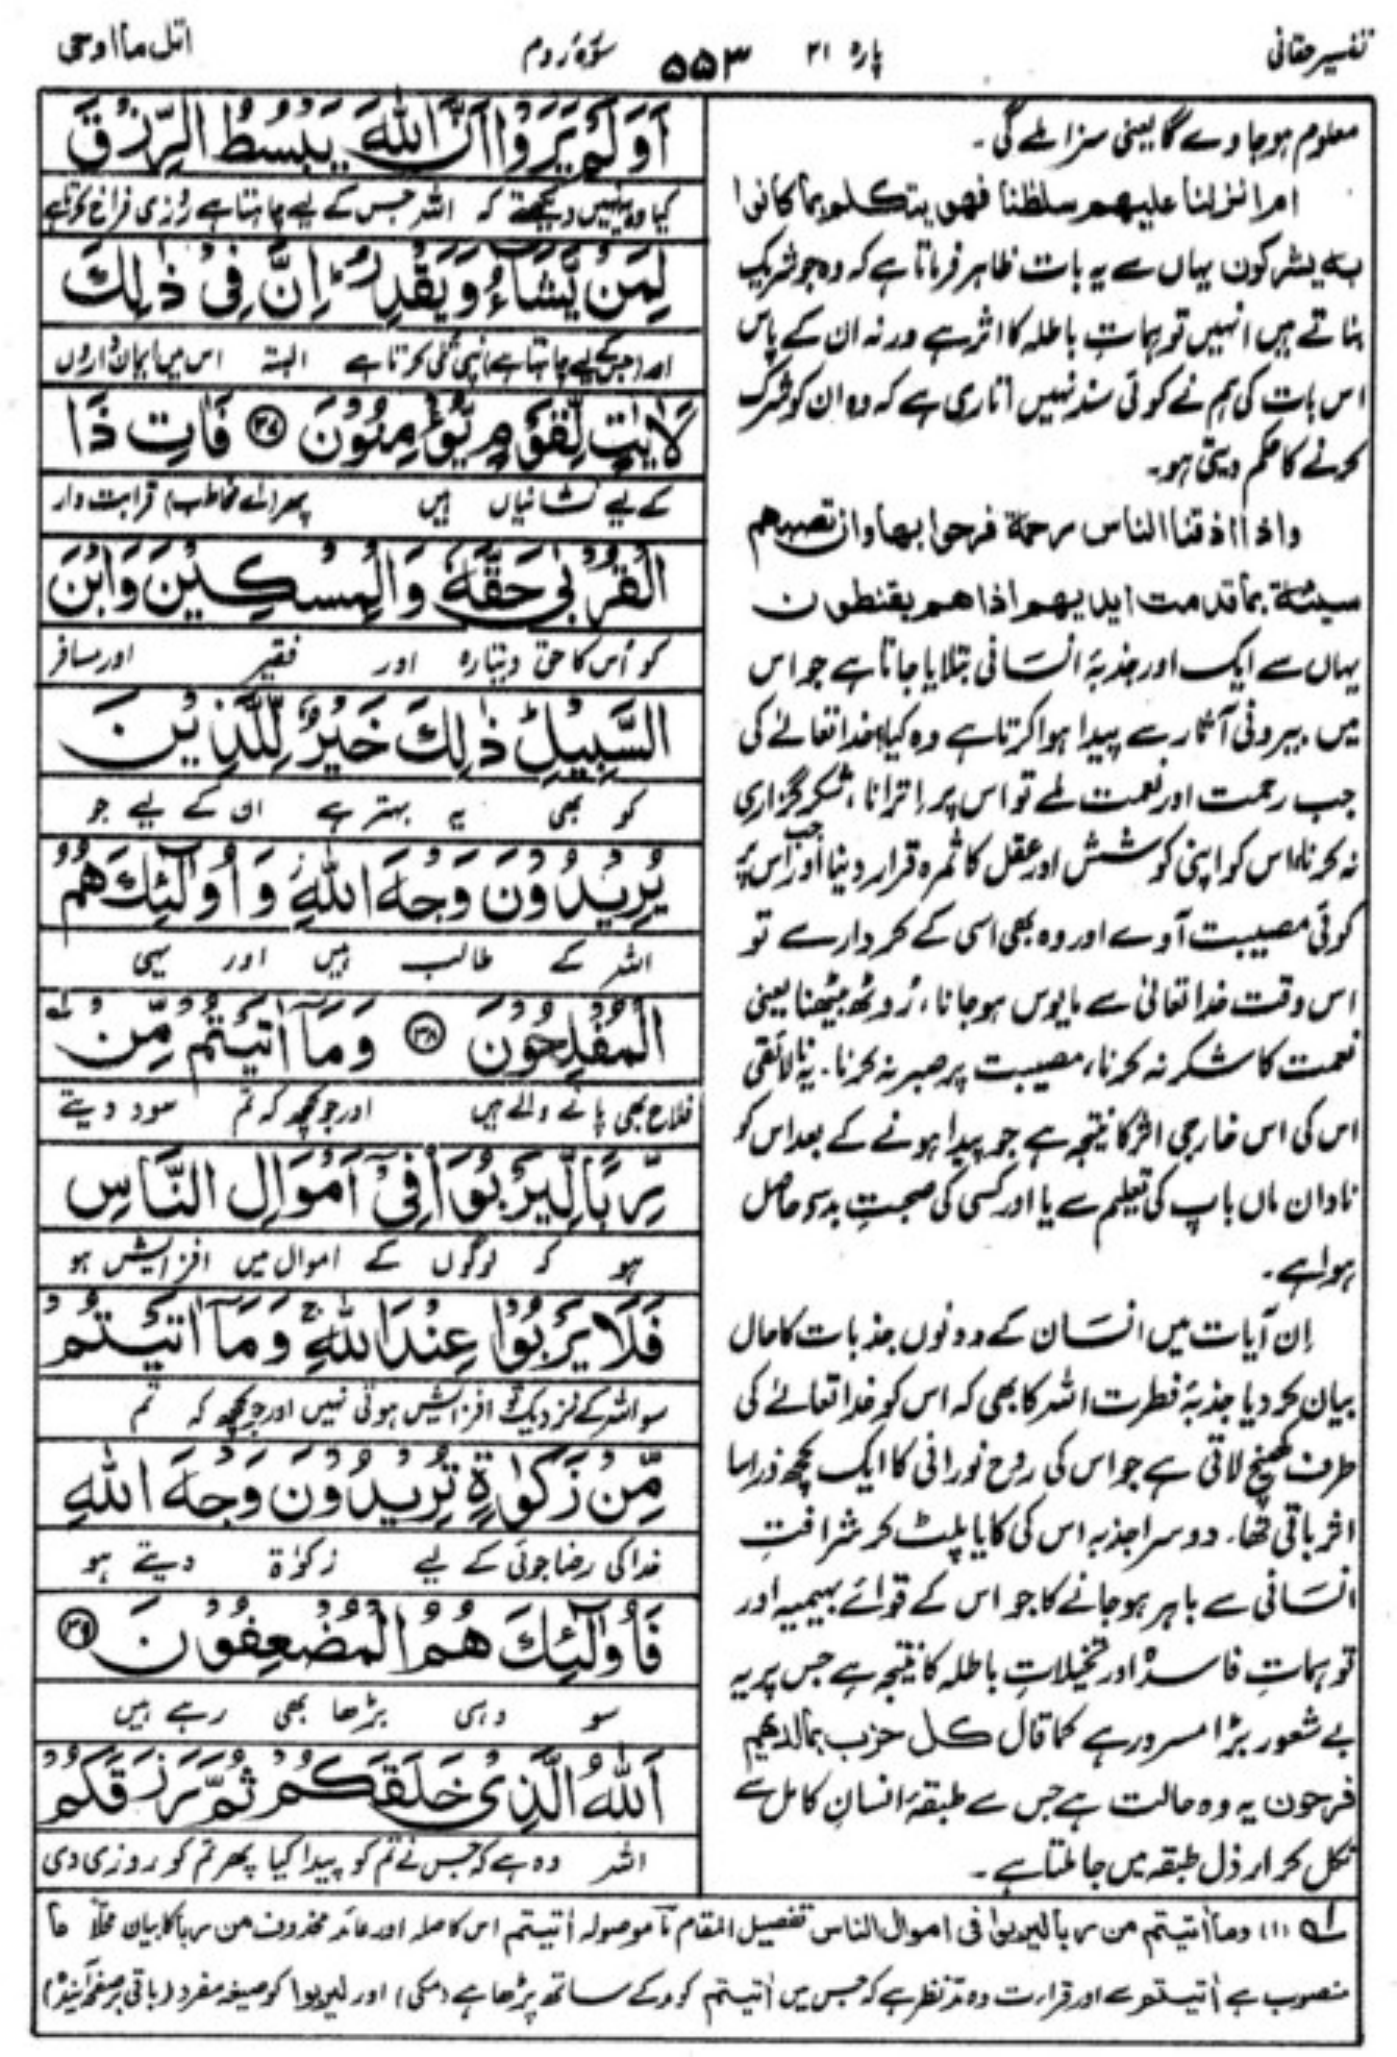 تفسیر حقانی
پارہ ۲۱
۵۵۳
سورۂ روم
اتل ما اوحی
معلوم ہو جاوے گا یعنی سزا ملے گی۔
ام انزلنا علیھم سلطنا فھو یتکلم بما کانوا
بہ یشرکون یہاں سے یہ بات ظاہر فرماتا ہے کہ وہ جو شریک
بناتے ہیں انہیں توہماتِ باطلہ کا اثر ہے ورنہ ان کے پاس
اس بات کی ہم نے کوئی سند نہیں اتاری ہے کہ وہ ان کو شرک
کرنے کا حکم دیتی ہو۔
واذا اذقنا الناس رحمة فرحوا بھا وان تصبھم
سیئة بما قدمت ایدیھم اذا ھم یقنطون
یہاں سے ایک اور جذبۂ انسانی بتلایا جاتا ہے جو اس
میں بیرونی آثار سے پیدا ہوا کرتا ہے وہ کیا؟ خدا تعالےٰ کی
جب رحمت اور نعمت ملے تو اس پر اترانا، شکر گزاری
نہ کرنا، اس کو اپنی کوشش اور عقل کا ثمرہ قرار دینا اور جب اس پر
کوئی مصیبت آوے اور وہ بھی اسی کے کردار سے تو
اس وقت خدا تعالیٰ سے مایوس ہو جانا، رُوٹھ بیٹھنا یعنی
نعمت کا شکر نہ کرنا، مصیبت پر صبر نہ کرنا۔ یہ نالائقی
اس کی اس خارجی اثر کا نتیجہ ہے جو پیدا ہونے کے بعد اس کو
نادان ماں باپ کی تعلیم سے یا اور کسی کی صحبتِ بد سے حاصل
ہوا ہے۔
اِن آیات میں انسان کے دونوں جذبات کا حال
بیان کر دیا جذبۂ فطرت اللہ کا بھی کہ اس کو خدا تعالےٰ کی
طرف کھینچ لاتی ہے جو اس کی روح نورانی کا ایک کچھ ذرا سا
اثر باقی تھا۔ دوسرا جذبہ اس کی کایا پلٹ کر شرافتِ
انسانی سے باہر ہو جانے کا جو اس کے قوائے بہیمیہ اور
توہماتِ فاسدہ اور تخیلاتِ باطلہ کا نتیجہ ہے جس پر یہ
بے شعور بڑا مسرور ہے کما قال کل حزب بما لدیھم
فرحون یہ وہ حالت ہے جس سے طبقۂ انسانِ کامل سے
نکل کر ارذل طبقہ میں جا ملتا ہے۔
اَوَلَمْ یَرَوْا اَنَّ اللّٰهَ یَبْسُطُ الرِّزْقَ
کیا وہ نہیں دیکھتے کہ اللہ جس کے لیے چاہتا ہے روزی فراخ کرتا ہے
لِمَنْ یَّشَآءُ وَ یَقْدِرُ ؕ اِنَّ فِیْ ذٰلِكَ
اور (جس کے لیے چاہتا ہے) نپی تلی کرتا ہے البتہ اس میں ایمان داروں
لَاٰیٰتٍ لِّقَوْمٍ یُّؤْمِنُوْنَ ۝۳۷ فَاٰتِ ذَا
کے لیے نشانیاں ہیں پھر (اے مخاطب) قرابت دار
الْقُرْبٰی حَقَّهٗ وَ الْمِسْكِیْنَ وَ ابْنَ
کو اُس کا حق دیتا رہ اور فقیر اور مسافر
السَّبِیْلِ ؕ ذٰلِكَ خَیْرٌ لِّلَّذِیْنَ
کو بھی یہ بہتر ہے ان کے لیے جو
یُرِیْدُوْنَ وَجْهَ اللّٰهِ ؗ وَ اُولٰٓئِكَ هُمُ
اللہ کے طالب ہیں اور یہی
الْمُفْلِحُوْنَ ۝۳۸ وَ مَاۤ اٰتَیْتُمْ مِّنْ
فلاح بھی پانے والے ہیں اور جو کچھ کہ تم سود دیتے
رِّبًا لِّیَرْبُوَا۠ فِیْۤ اَمْوَالِ النَّاسِ
ہو کہ لوگوں کے اموال میں افزایش ہو
فَلَا یَرْبُوْا عِنْدَ اللّٰهِ ۚ وَ مَاۤ اٰتَیْتُمْ
سو اللہ کے نزدیک تو افزایش ہوتی نہیں اور جو کچھ کہ تم
مِّنْ زَكٰوةٍ تُرِیْدُوْنَ وَجْهَ اللّٰهِ
خدا کی رضا جوئی کے لیے زکوٰۃ دیتے ہو
فَاُولٰٓئِكَ هُمُ الْمُضْعِفُوْنَ ۝۳۹
سو وہی بڑھا بھی رہے ہیں
اَللّٰهُ الَّذِیْ خَلَقَكُمْ ثُمَّ رَزَقَكُمْ
اللہ وہ ہے کہ جس نے تم کو پیدا کیا پھر تم کو روزی دی
لہ (۱) وما اٰتیتم من ربا لیربوا فی اموال الناس تفصیل المقام مآ موصولہ اٰتیتم اس کا صلہ اور عائد محذوف من ربا کا بیان محلاً ما
منصوب ہے اٰتیتم سے اور قراءت وہ مدّ نظر ہے کہ جس میں اٰتیتم کو مد کے ساتھ پڑھا ہے (مکی) اور لیربوا کو صیغہ مفرد (باقی بر صفحہ آیندہ)